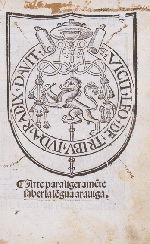 VICIT·LEO·DE·TRIBV·IVDA·RADIX·DAVIT·
¶Arte para ligeramēte
saber la lēgua arauiga.